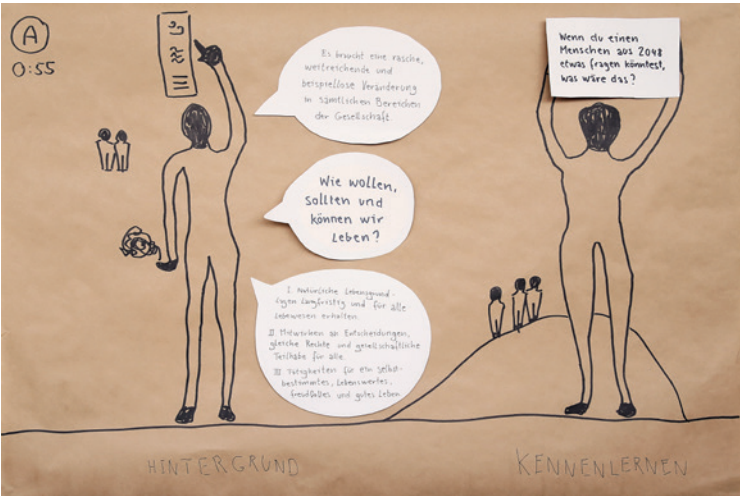 A
0:55
Es braucht eine rasche,
weitreichende und
beispiellose Veränderung
in sämtlichen Bereichen
der Gesellschaft
Wie wollen,
sollten und
können wir
Leben?
I. Natürliche Lebensgrund-
lagen langfristig und für alle
Lebewesen erhalten.
II. Mitwirken an Entscheidungen,
gleiche Rechte und gesellschaftliche
Teilhabe für alle.
III. Tätigkeiten für ein selbst-
bestimmtes, Lebenswertes,
freudvolles und gutes Leben
HINTERGRUND
Wenn du einen
Menschen aus 2048
etwas fragen könntest,
was wäre das?
KENNENLERNEN